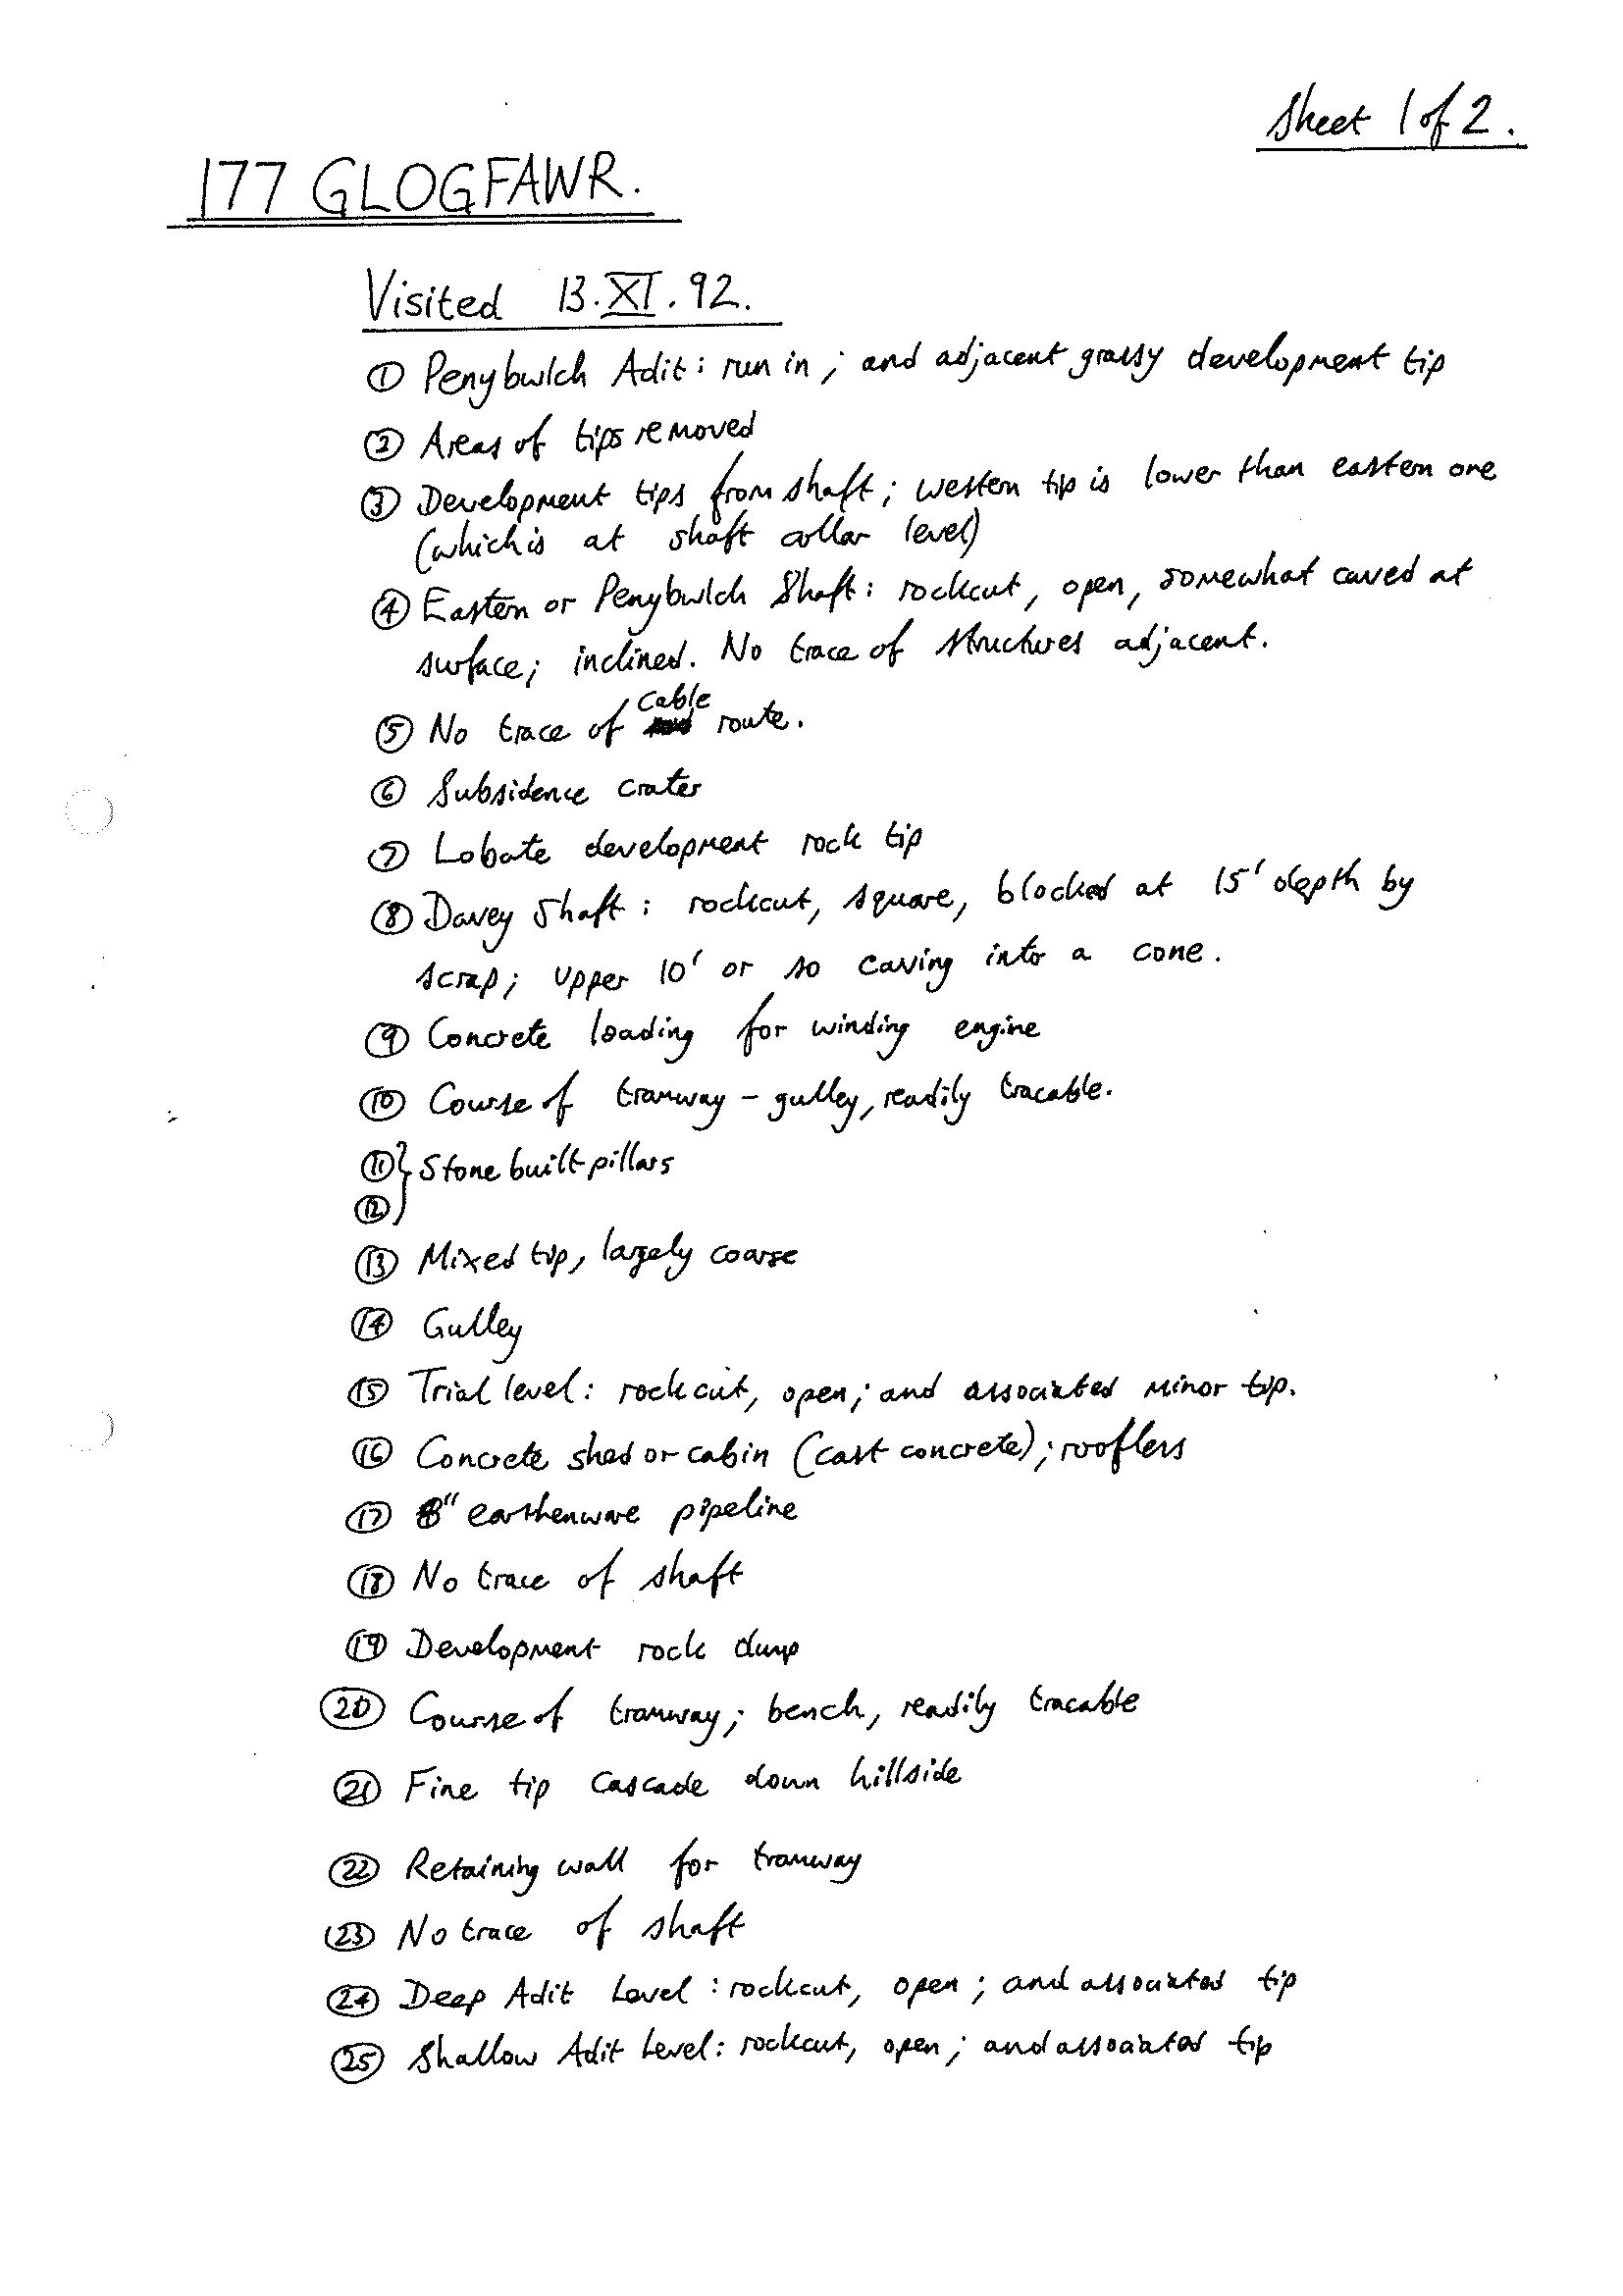 Sheet 1 of 2.
177 GLOGFAWR.
Visited 13.XI.92.
① Penybwlch Adit: run in; and adjacent grassy development tip
② Areas of tips removed
③ Development tips from shaft; western tip is lower than eastern one
(which is at shaft collar level)
④ Eastern or Penybwlch Shaft: rockcut, open, somewhat caved at
surface; inclined. No trace of structures adjacent.
⑤ No trace of cable route.
⑥ Subsidence crater
⑦ Lobate development rock tip
⑧ Davey Shaft: rockcut, square, blocked at 15' depth by
scrap; upper 10' or so caving into a cone.
⑨ Concrete loading for winding engine
⑩ Course of tramway - gulley, readily tracable.
⑪ } Stone built pillars
⑫
⑬ Mixed tip, largely coarse
⑭ Gulley
⑮ Trial level: rockcut, open; and associated minor tip.
⑯ Concrete shed or cabin (cast concrete); roofless
⑰ 8" earthenware pipeline
⑱ No trace of shaft
⑲ Development rock dump
⑳ Course of tramway; bench, readily tracable
㉑ Fine tip cascade down hillside
㉒ Retaining wall for tramway
㉓ No trace of shaft
㉔ Deep Adit Level: rockcut, open; and associated tip
㉕ Shallow Adit Level: rockcut, open; and associated tip